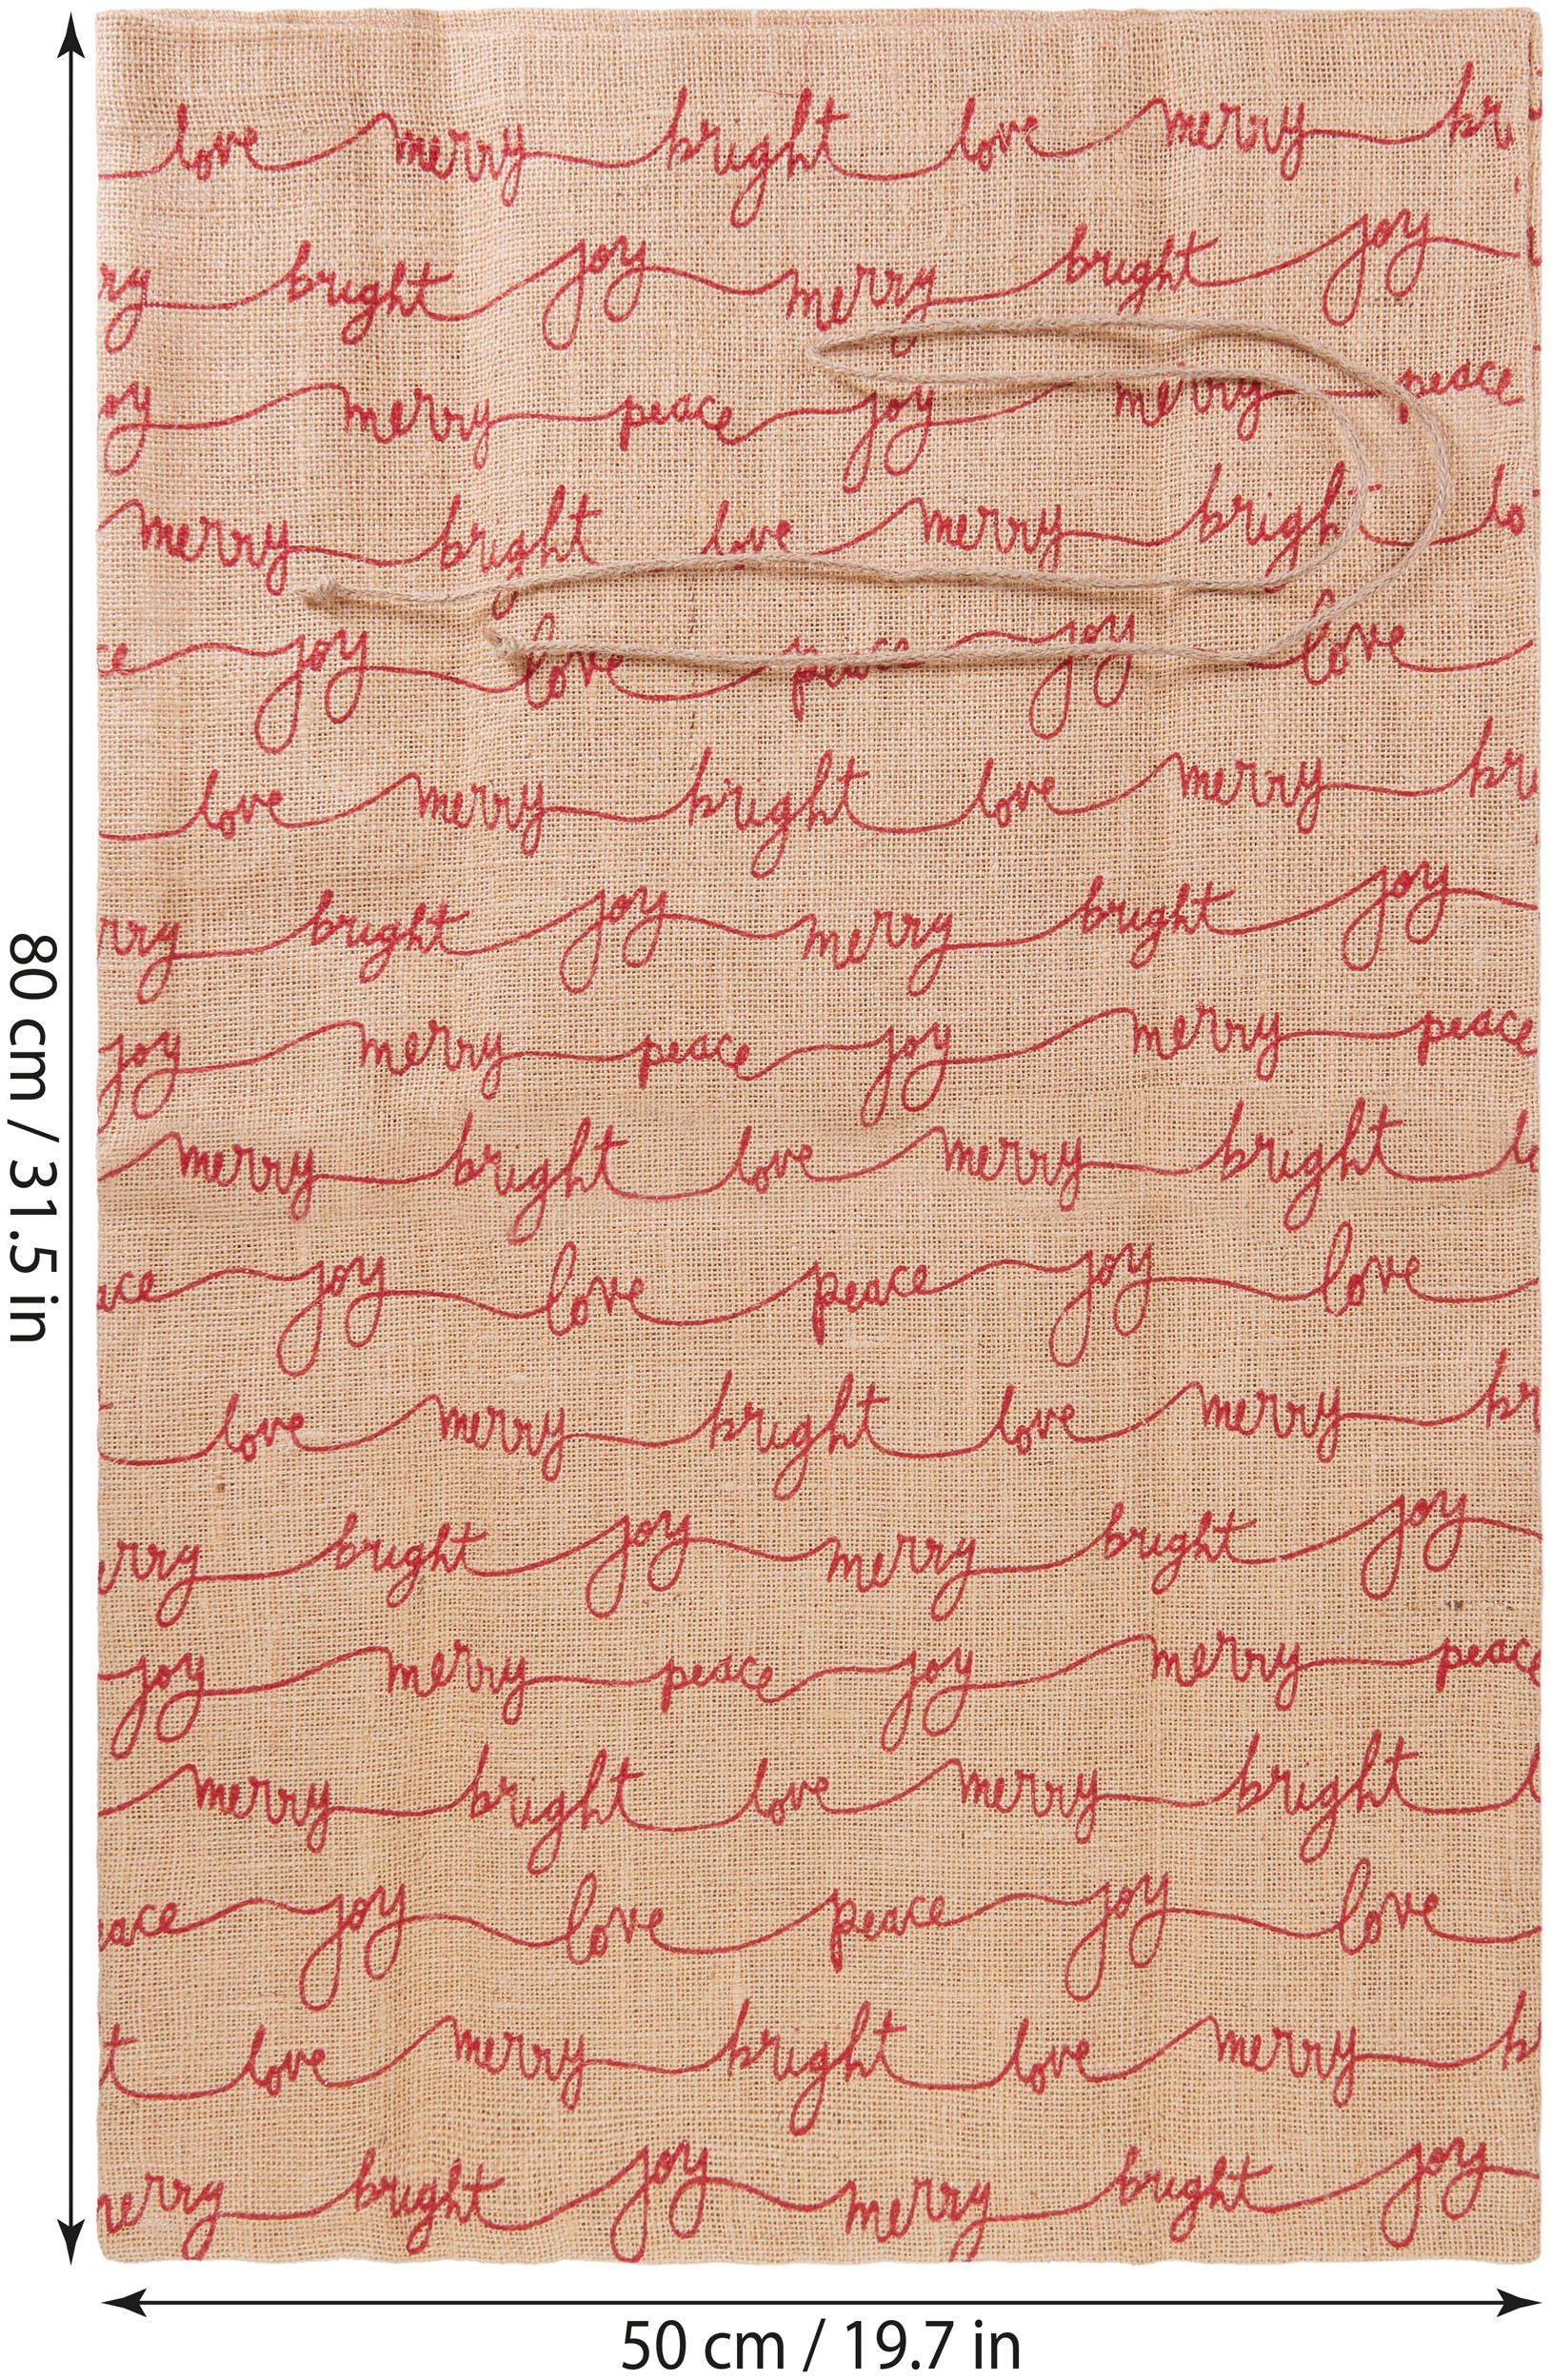 love merry bright love merry br
ry bright joy merry bright joy
oy merry peace joy merry peace
merry bright love merry bright lo
ce joy love peace joy love
love merry bright love merry bri
rry bright joy merry bright joy
joy merry peace joy merry peace
merry bright love merry bright lo
ace joy love peace joy love
love merry bright love merry br
erry bright joy merry bright joy
joy merry peace joy merry peace
merry bright love merry bright l
eace joy love peace joy love
t love merry bright love merry b
merry bright joy merry bright joy
80 cm / 31.5 in
50 cm / 19.7 in